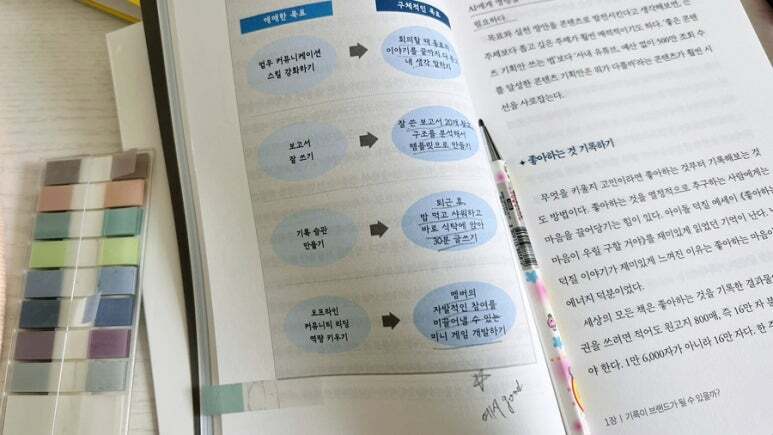 애매한 목표
구체적인 목표
업무 커뮤니케이션
스킬 강화하기
회의할 때 동료의
이야기를 끝까지 다 듣고
내 생각 말하기
보고서
잘 쓰기
잘 쓴 보고서 20개 찾고,
구조를 분석해서
템플릿으로 만들기
기록 습관
만들기
퇴근 후,
밥 먹고 샤워하고
바로 식탁에 앉아
30분 글쓰기
오프라인
커뮤니티 리딩
역량 키우기
멤버의
자발적인 참여를
이끌어낼 수 있는
미니 게임 개발하기
예시 good
필요하다.
목표와 실천 방안을 콘텐츠로 발전시킨다고 생각해보면, 큰
주제보다 좁고 깊은 주제가 훨씬 매력적이기도 하다. '좋은 콘텐
츠 기획안 쓰는 법'보다 '사내 유튜브, 예산 없이 500만 조회 수
를 달성한 콘텐츠 기획안은 뭐가 다를까'라는 콘텐츠가 훨씬 시
선을 사로잡는다.
✦ 좋아하는 것 기록하기
무엇을 키울지 고민이라면 좋아하는 것부터 기록해보는 것
도 방법이다. 좋아하는 것을 열정적으로 추구하는 사람에게는
마음을 끌어당기는 힘이 있다. 아이돌 덕질 에세이 《좋아하는
마음이 우릴 구할 거야》를 재미있게 읽었던 기억이 난다.
덕질 이야기가 재미있게 느껴진 이유는 좋아하는 마음이
에너지 덕분이었다.
세상의 모든 책은 좋아하는 것을 기록한 결과물
권을 쓰려면 적어도 원고지 800매, 즉 16만 자 분
야 한다. 1만 6,000자가 아니라 16만 자다. 한
1장 | 기록이 브랜드가 될 수 있을까?